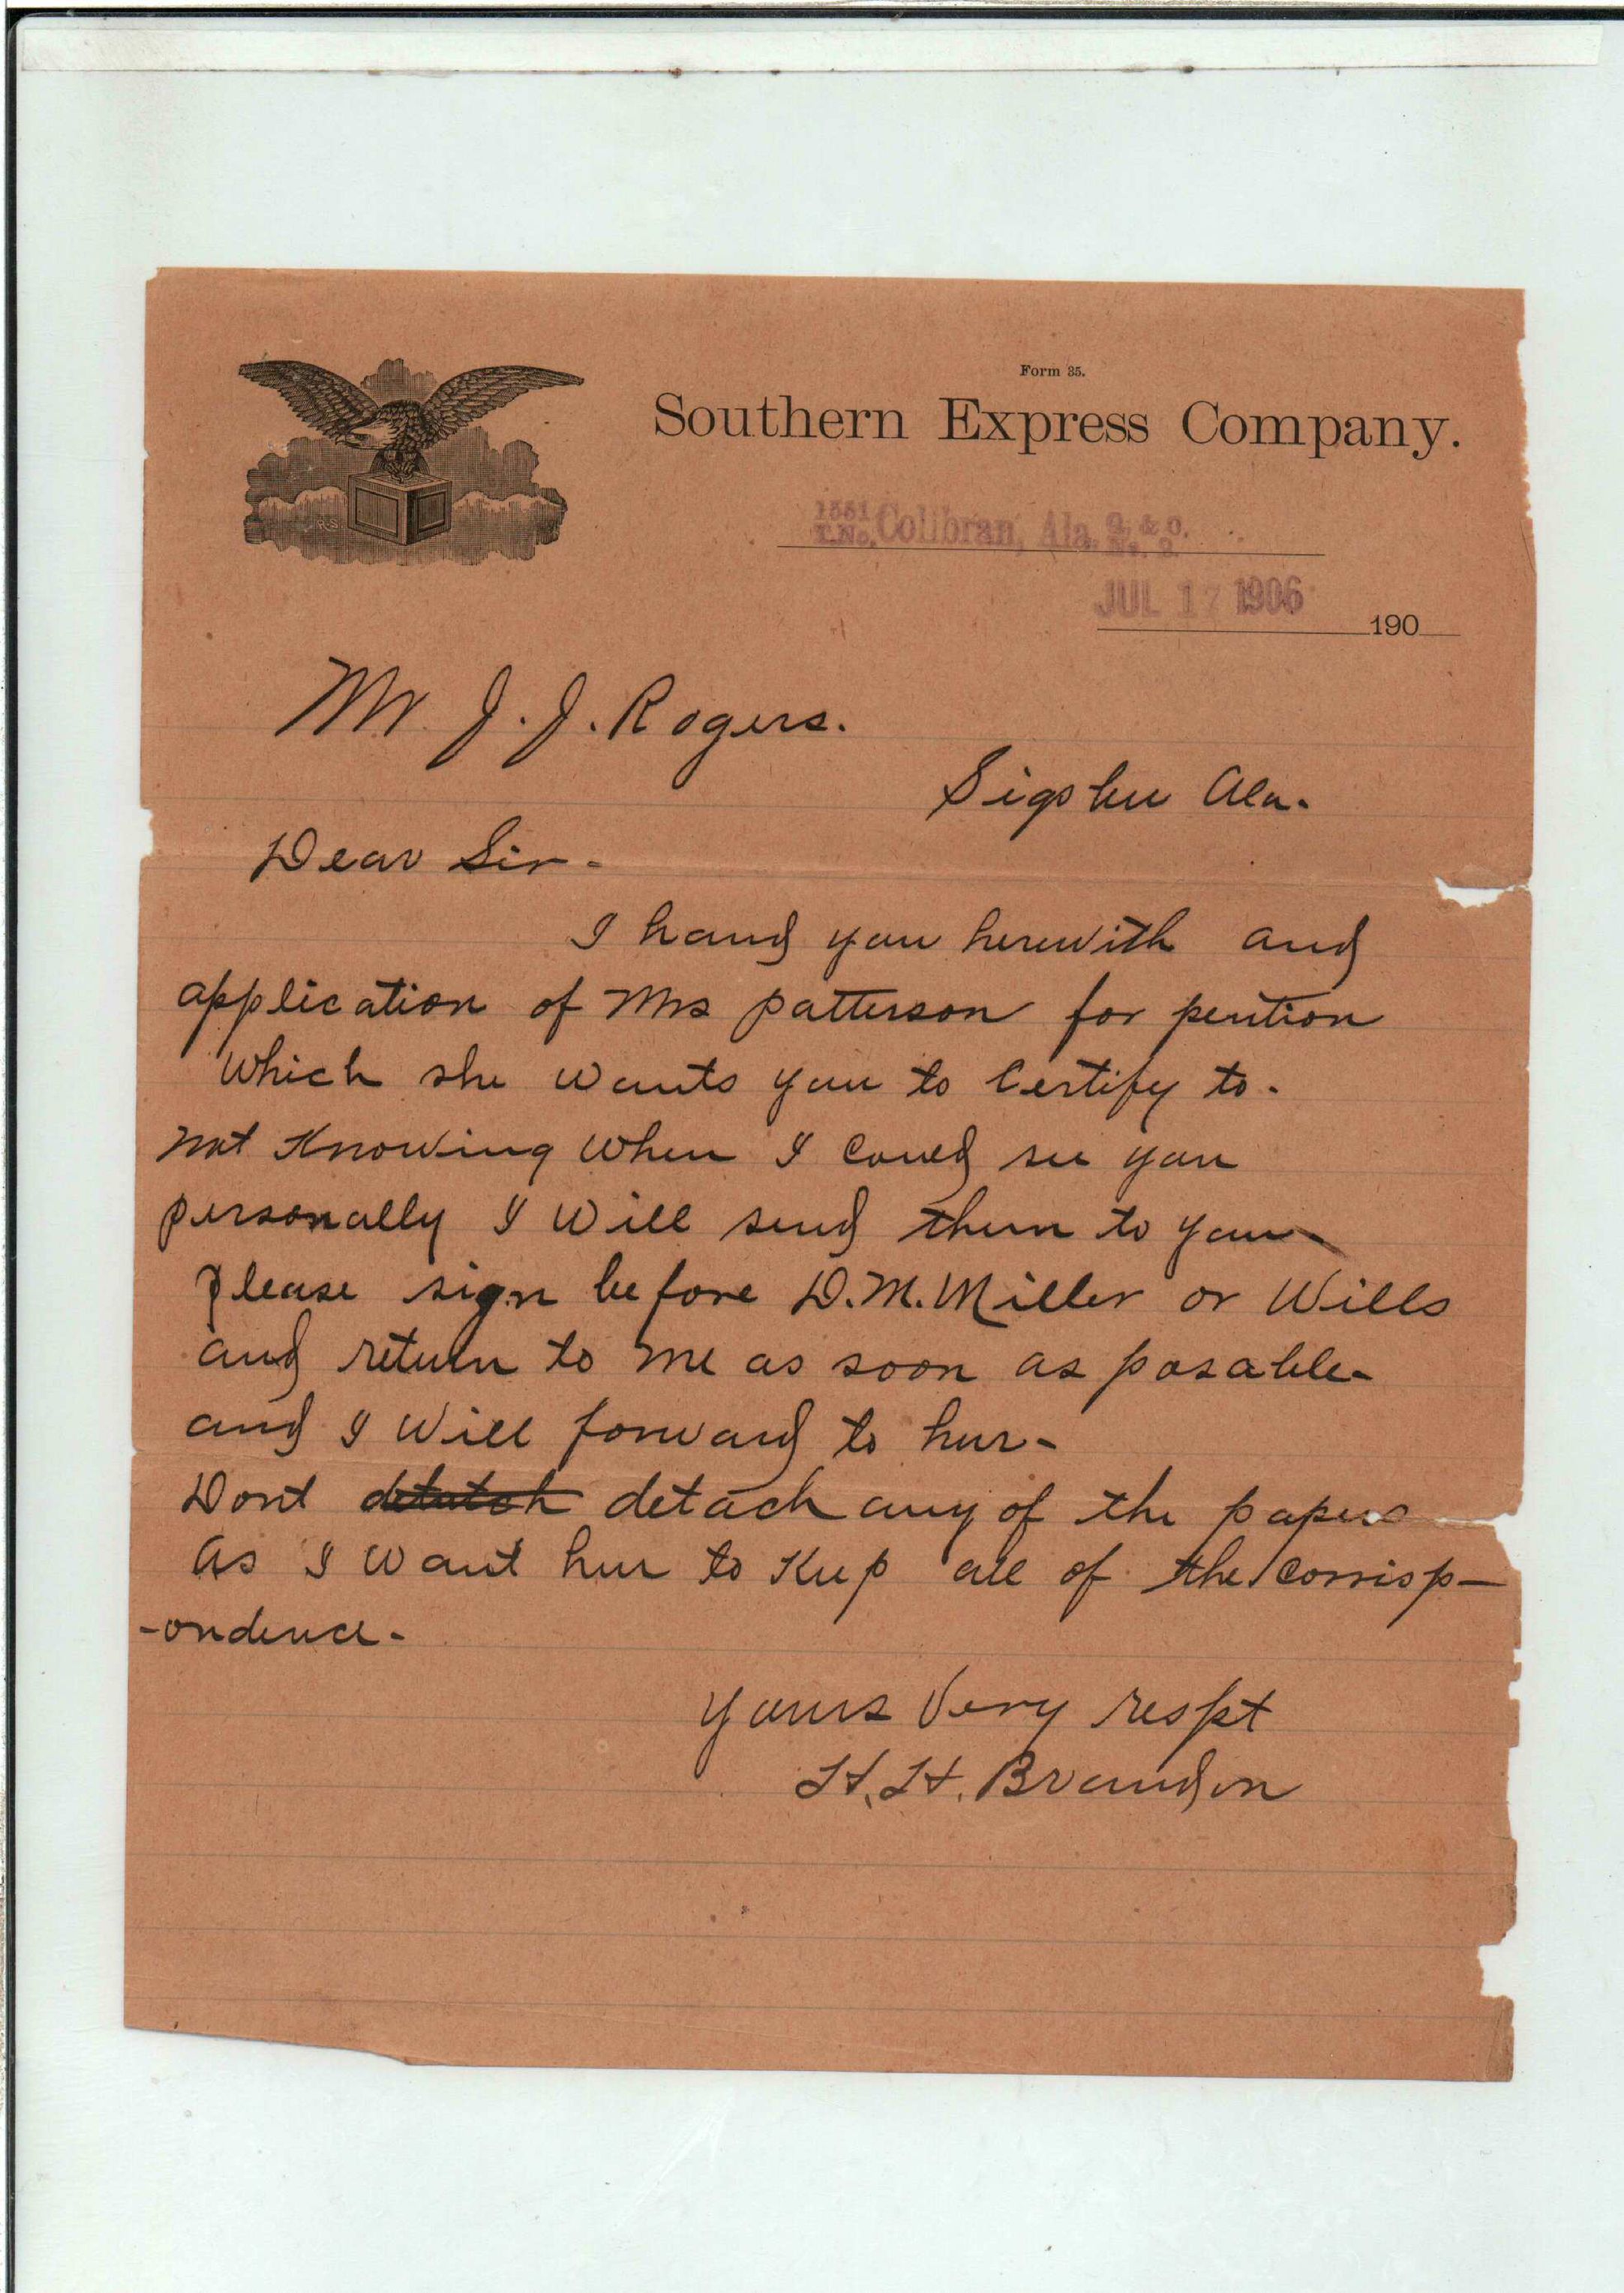 Form 35.
Southern Express Company.
1551
T.No. Collbran, Ala.
JUL 17 1906
190
Mr J. J. Rogers.
Ala.
Dear Sir-
I hand you herewith and
application of Mrs patterson for pention
Which she wants you to Certify to.
not Knowing When I Could see you
personally I Will send them to you
please sign before D.M. Miller or Wills
and return to me as soon as posable-
and I Will forward to her-
Dont detatch detach any of the papers
As I Want her to Keep all of the Corrisp-
-ondence-
yours Very respt
H. H. Brandon